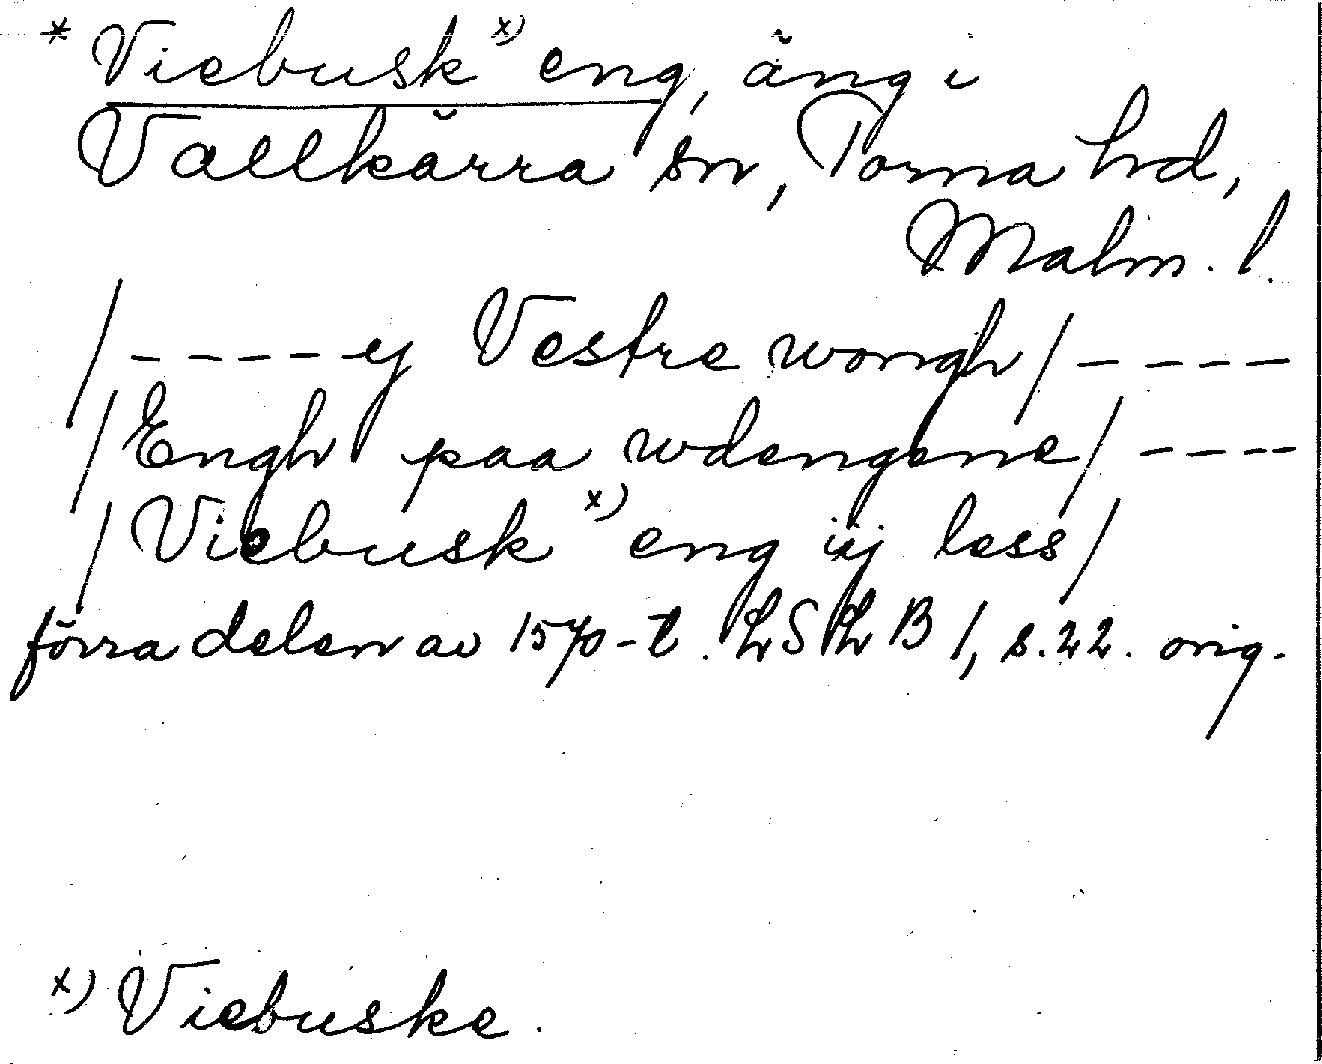 * Viebusk x) eng, äng i
Vallkärra sn, Torna hd,
Malm. l.
/ - - - - ey Vestre wongh / - - - -
/ Engh paa wdengene / - - - -
/ Viebusk x) eng iij less /
förra delen av 1570-t. LSLB 1, s. 22. orig.
x) Viebuske.